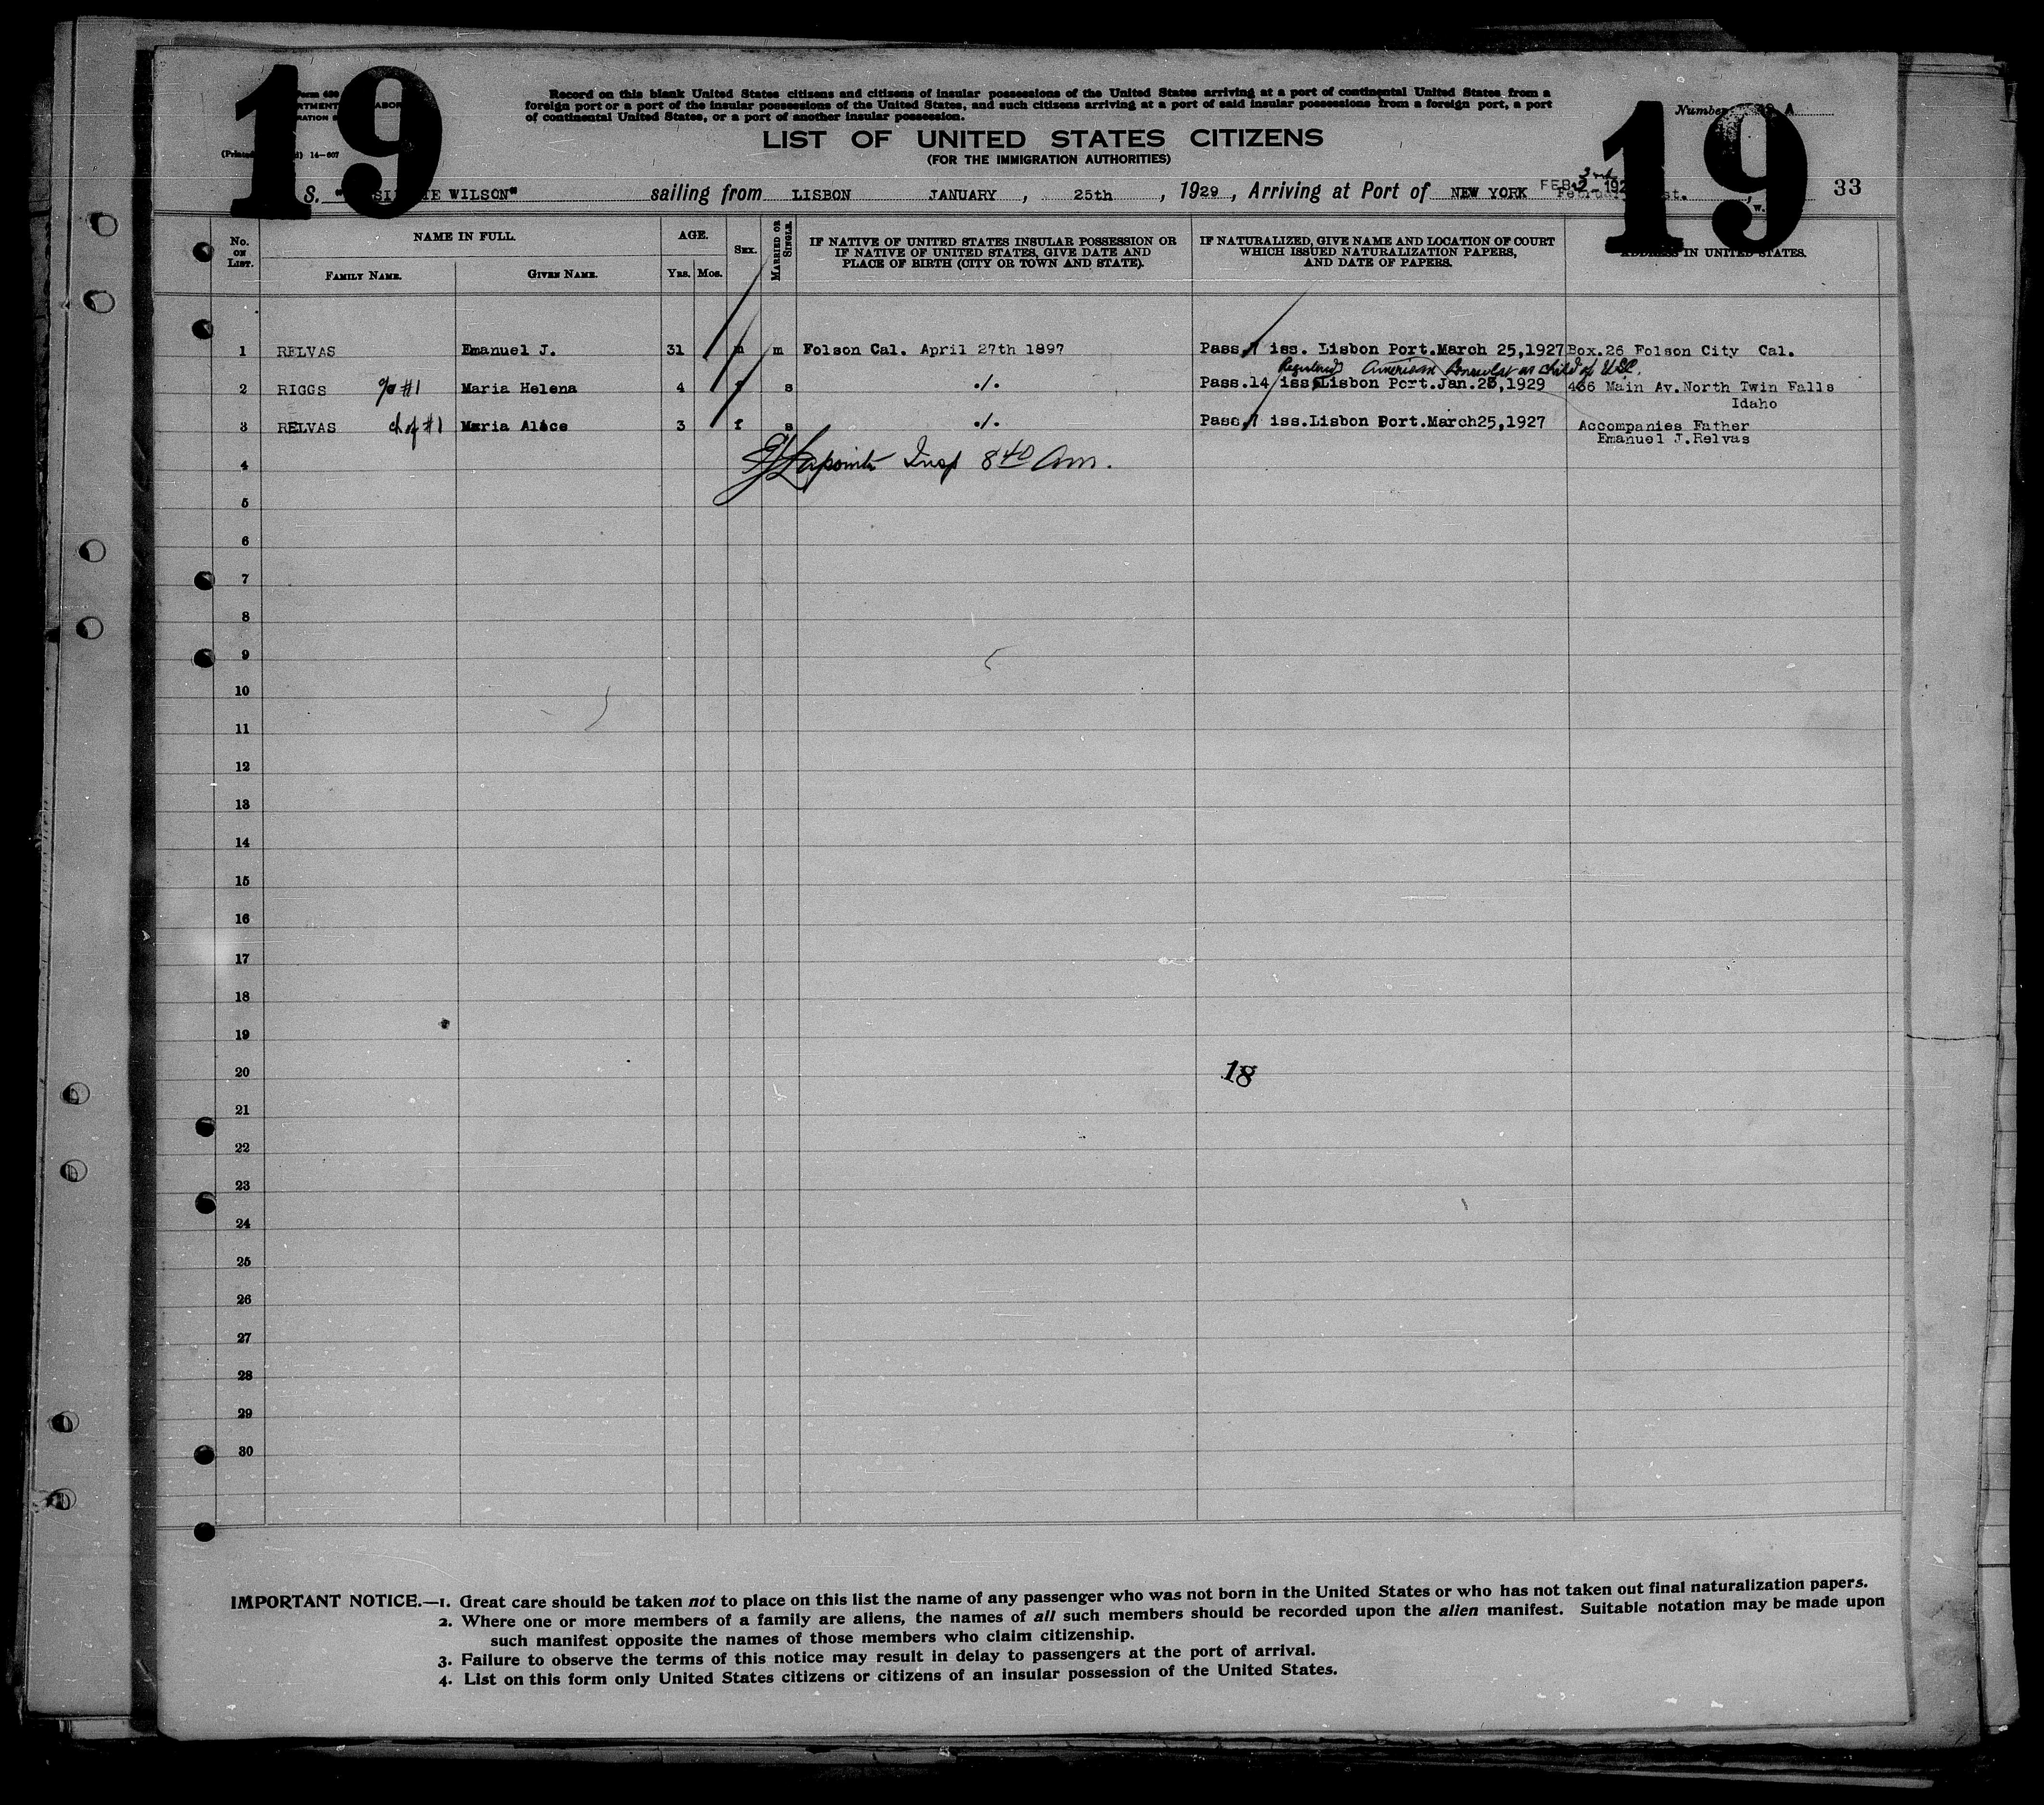 19
19
Form 630
Record on this blank United States citizens and citizens of insular possessions of the United States arriving at a port of continental United States from a
foreign port or a port of the insular possessions of the United States, and such citizens arriving at a port of said insular possessions from a foreign port, a port
of continental United States, or a port of another insular possession.
Number A
LIST OF UNITED STATES CITIZENS
(FOR THE IMMIGRATION AUTHORITIES)
14—607
S. WILSON" sailing from LISBON JANUARY , 25th , 1929 , Arriving at Port of NEW YORK FEB 33
No. ON LIST.
NAME IN FULL.
FAMILY NAME. GIVEN NAME.
AGE.
YRS. MOS.
SEX.
MARRIED OR SINGLE.
IF NATIVE OF UNITED STATES INSULAR POSSESSION OR
IF NATIVE OF UNITED STATES, GIVE DATE AND
PLACE OF BIRTH (CITY OR TOWN AND STATE).
IF NATURALIZED, GIVE NAME AND LOCATION OF COURT
WHICH ISSUED NATURALIZATION PAPERS,
AND DATE OF PAPERS.
ADDRESS IN UNITED STATES.
1 RELVAS Emanuel J. 31 m m Folson Cal. April 27th 1897 Pass. iss. Lisbon Port.March 25,1927 Box.26 Folson City Cal.
Registered American Consulst as child of USC.
2 RIGGS #1 Maria Helena 4 f s ./. Pass.14 iss Lisbon Port.Jan.25,1929 466 Main Av.North Twin Falls
Idaho
3 RELVAS ch of #1 Maria Alice 3 f s ./. Pass. iss.Lisbon Port.March25,1927 Accompanies Father
Emanuel J.Relvas
4 Lapointe Insp 8 40 am.
5
6
7
8
9
10
11
12
13
14
15
16
17
18
19
20 18
21
22
23
24
25
26
27
28
29
30
IMPORTANT NOTICE.—1. Great care should be taken not to place on this list the name of any passenger who was not born in the United States or who has not taken out final naturalization papers.
2. Where one or more members of a family are aliens, the names of all such members should be recorded upon the alien manifest. Suitable notation may be made upon
such manifest opposite the names of those members who claim citizenship.
3. Failure to observe the terms of this notice may result in delay to passengers at the port of arrival.
4. List on this form only United States citizens or citizens of an insular possession of the United States.